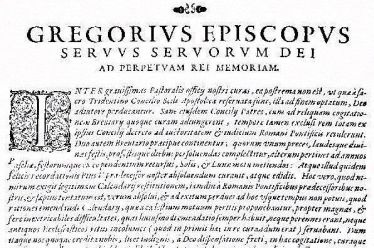 GREGORIVS EPISCOPVS
SERVVS SERVORVM DEI
AD PERPETVAM REI MEMORIAM.
INTER grauissimas Pastoralis officij nostri curas, ea postrema non est, vt quæ à sa-
cro Tridentino Concilio Sedi Apostolicæ reseruata sunt, illa ad finem optatum, Deo
adiutore perducantur. Sane eiusdem Concilij Patres, cum ad reliquam cogitatio-
nem Breuiarij quoque curam adiungerent, tempore tamen exclusi rem totam ex
ipsius Concilij decreto ad auctoritatem & iudicium Romani Pontificis retulerunt.
Duo autem Breuiario præcipue continentur, quorum vnum preces, laudesque diui-
nas festis, profestisque diebus persoluendas complectitur, alterum pertinet ad annuos
Paschæ, festorumque ex eo pendentium recursus, Solis, & Lunæ motu metiendos. Atque illud quidem
felicis recordationis Pius V. prædecessor noster absoluendum curauit, atque edidit. Hoc vero, quod ni-
mirum exigit legitimam Calendarij restitutionem, iamdiu à Romanis Pontificibus prædecessoribus no-
stris, & sæpius tentatum est, verum absolui, & ad exitum perduci ad hoc vsque tempus non potuit, quod
rationes emendandi Calendarij, quæ a cælestium motuum peritis proponebantur, propter magnas, & 
fere inextricabiles difficultates, quas huiusmodi emendatio semper habuit, neque perennes erant, neque
antiquos Ecclesiasticos ritus incolumes (quod in primis hac in re curandum erat) seruabant. Dum
itaque nos quoque, credita nobis, licet indignis, a Deo dispensatione freti, in hac cogitatione,